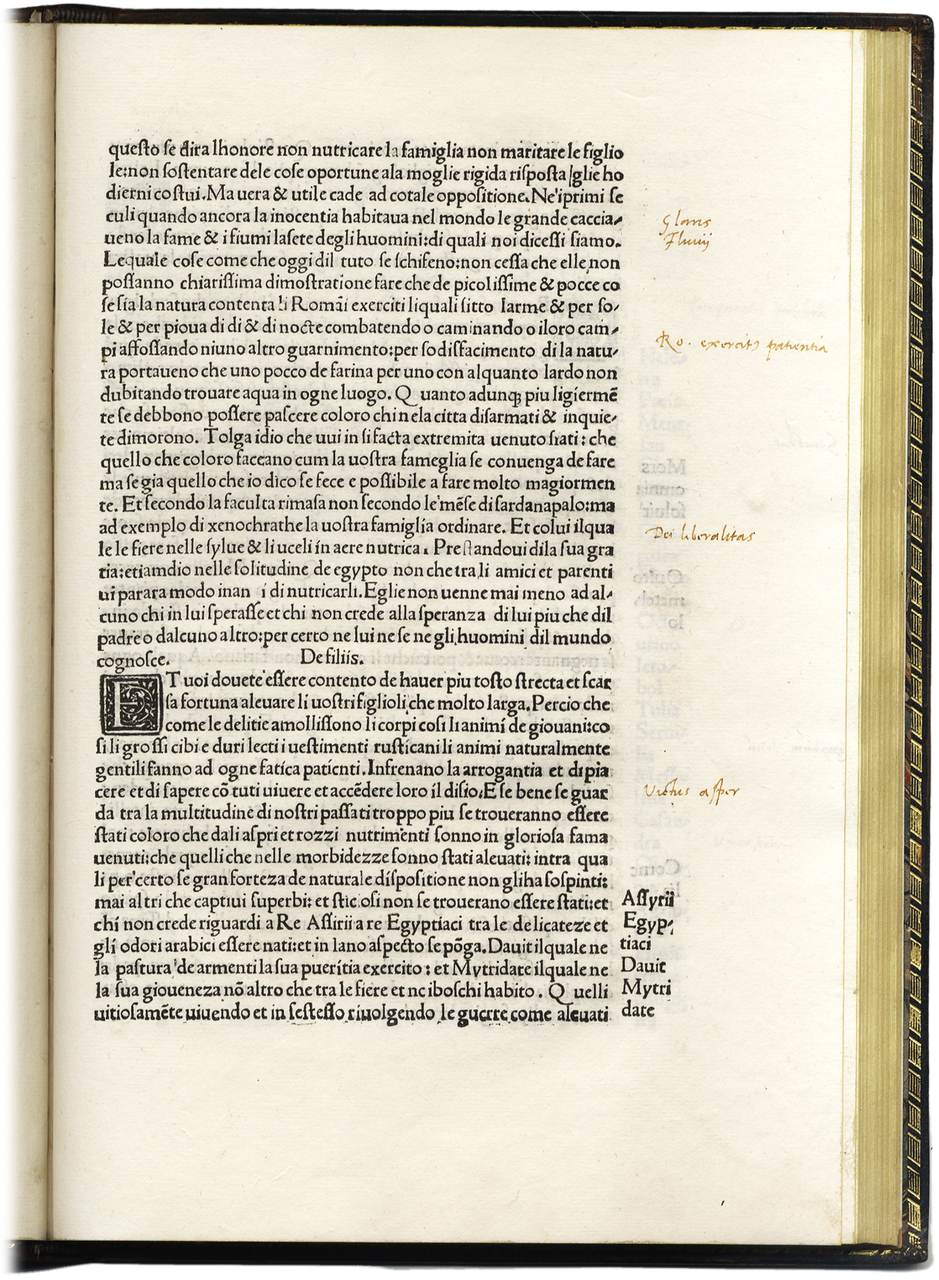 questo se dira lhonore non nutricare la famiglia non maritare le figlio
le:non sostentare dele cose oportune ala moglie rigida risposta glie ho
dierni costui.Ma uera & utile cade ad cotale oppositione.Ne'iprimi se
culi quando ancora la inocentia habitaua nel mondo le grande caccia-
Glans
ueno la fame & i fiumi lasete degli huomini:di quali noi dicessi siamo.
Fluuij
Lequale cose come che oggi dil tuto se schifeno:non cessa che elle non
possanno chiarissima dimostratione fare che de picolissime & pocce co
se sia la natura contenta li Romãi exerciti liquali sitto larme & per so-
le & per pioua di di & di nocte combatendo o caminando o iloro cam-
Ro. exercitꝰ patientia
pi affossando niuno altro guarnimento:per sodisfacimento di la natu-
ra portaueno che uno pocco de farina per uno con alquanto lardo non
dubitando trouare aqua in ogne luogo. Q uanto adunqꝫ piu ligiermẽ
te se debbono possere pascere coloro chi n ela citta disarmati & inquie-
te dimorono. Tolga idio che uui in si facta extremita uenuto siati : che
quello che coloro faceano cum la uostra fameglia se conuenga de fare
ma se gia quello che io dico se fece e possibile a fare molto magiormen
te. Et secondo la faculta rimasa non secondo le mẽse di sardanapalo:ma
ad exemplo di xenochrathe la uostra famiglia ordinare. Et colui ilqua
Dei liberalitas
le le fiere nelle sylue & li uceli in aere nutrica . Prestandoui dila sua gra
tia:etiamdio nelle solitudine de egypto non che tra li amici et parenti
ui parara modo inan i di nutricarli.Eglie non uenne mai meno ad al-
cuno chi in lui sperasse et chi non crede alla speranza di lui piu che dil
padre o dalcuno altro:per certo ne lui ne se ne gli huomini dil mundo
cognosce. De filiis.
ET uoi douete essere contento de hauer piu tosto strecta et scar
sa fortuna aleuare li uostri figlioli che molto larga.Percio che
come le delitie amollissono li corpi cosi li animi de giouani:co
si li grossi cibi e duri lecti i uestimenti rusticani li animi naturalmente
gentili fanno ad ogne fatica patienti.Infrenano la arrogantia et di pia
cere et di sapere cõ tuti uiuere et accẽdere loro il disio.E se bene se guar
Victus asper
da tra la multitudine di nostri passati troppo piu se troueranno essere
stati coloro che dali aspri et rozzi nutrimenti sonno in gloriosa fama
uenuti:che quelli che nelle morbidezze sonno stati aleuati: intra qua
li per certo se gran forteza de naturale dispositione non gli ha sospinti:
mai altri che captiui superbi: et stic osi non se trouerano essere stati:et
Assyrii
chi non crede riguardi a Re Assirii a re Egyptiaci tra le delicateze et
Egyp-
gli odori arabici essere nati:et in lano aspecto se põga.Dauit ilquale ne
tiaci
la pastura de armenti la sua pueritia exercito : et Mytridate ilquale ne
Dauit
la sua gioueneza nõ altro che tra le fiere et ne iboschi habito . Q uelli
Mytri
uitiosamẽte uiuendo et in sestesso riuolgendo le guerre come aleuati
date